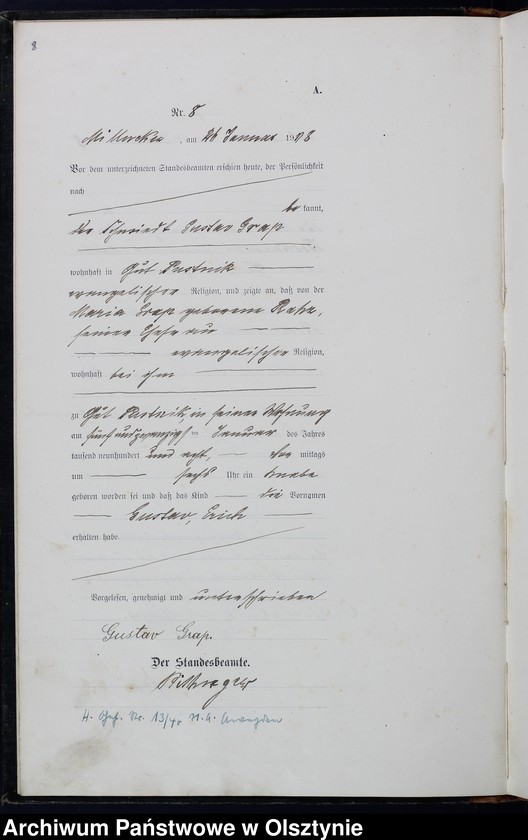 8
A.
Nr. 8
am 26 Januar 1908
Vor dem unterzeichneten Standesbeamten erschien heute, der Persönlichkeit
nach
be kannt,
der Schmiedt Gustav Grap
wohnhaft in Gut Pustnik
evangelischer Religion, und zeigte an, daß von der
Maria Grap geborenen
seiner Ehefrau
evangelischer Religion,
wohnhaft bei ihm
zu Gut Pustnik, in seiner Wohnung
am fünfundzwanzigsten Januar des Jahres
tausend neunhundert und acht, vor mittags
um sechs Uhr ein Knabe
geboren worden sei und daß das Kind die Vornamen
Gustav, Erich
erhalten habe.
Vorgelesen, genehmigt und unterschrieben
Gustav Grap.
Der Standesbeamte.
H. Nr. 13/40
Archiwum Państwowe w Olsztynie